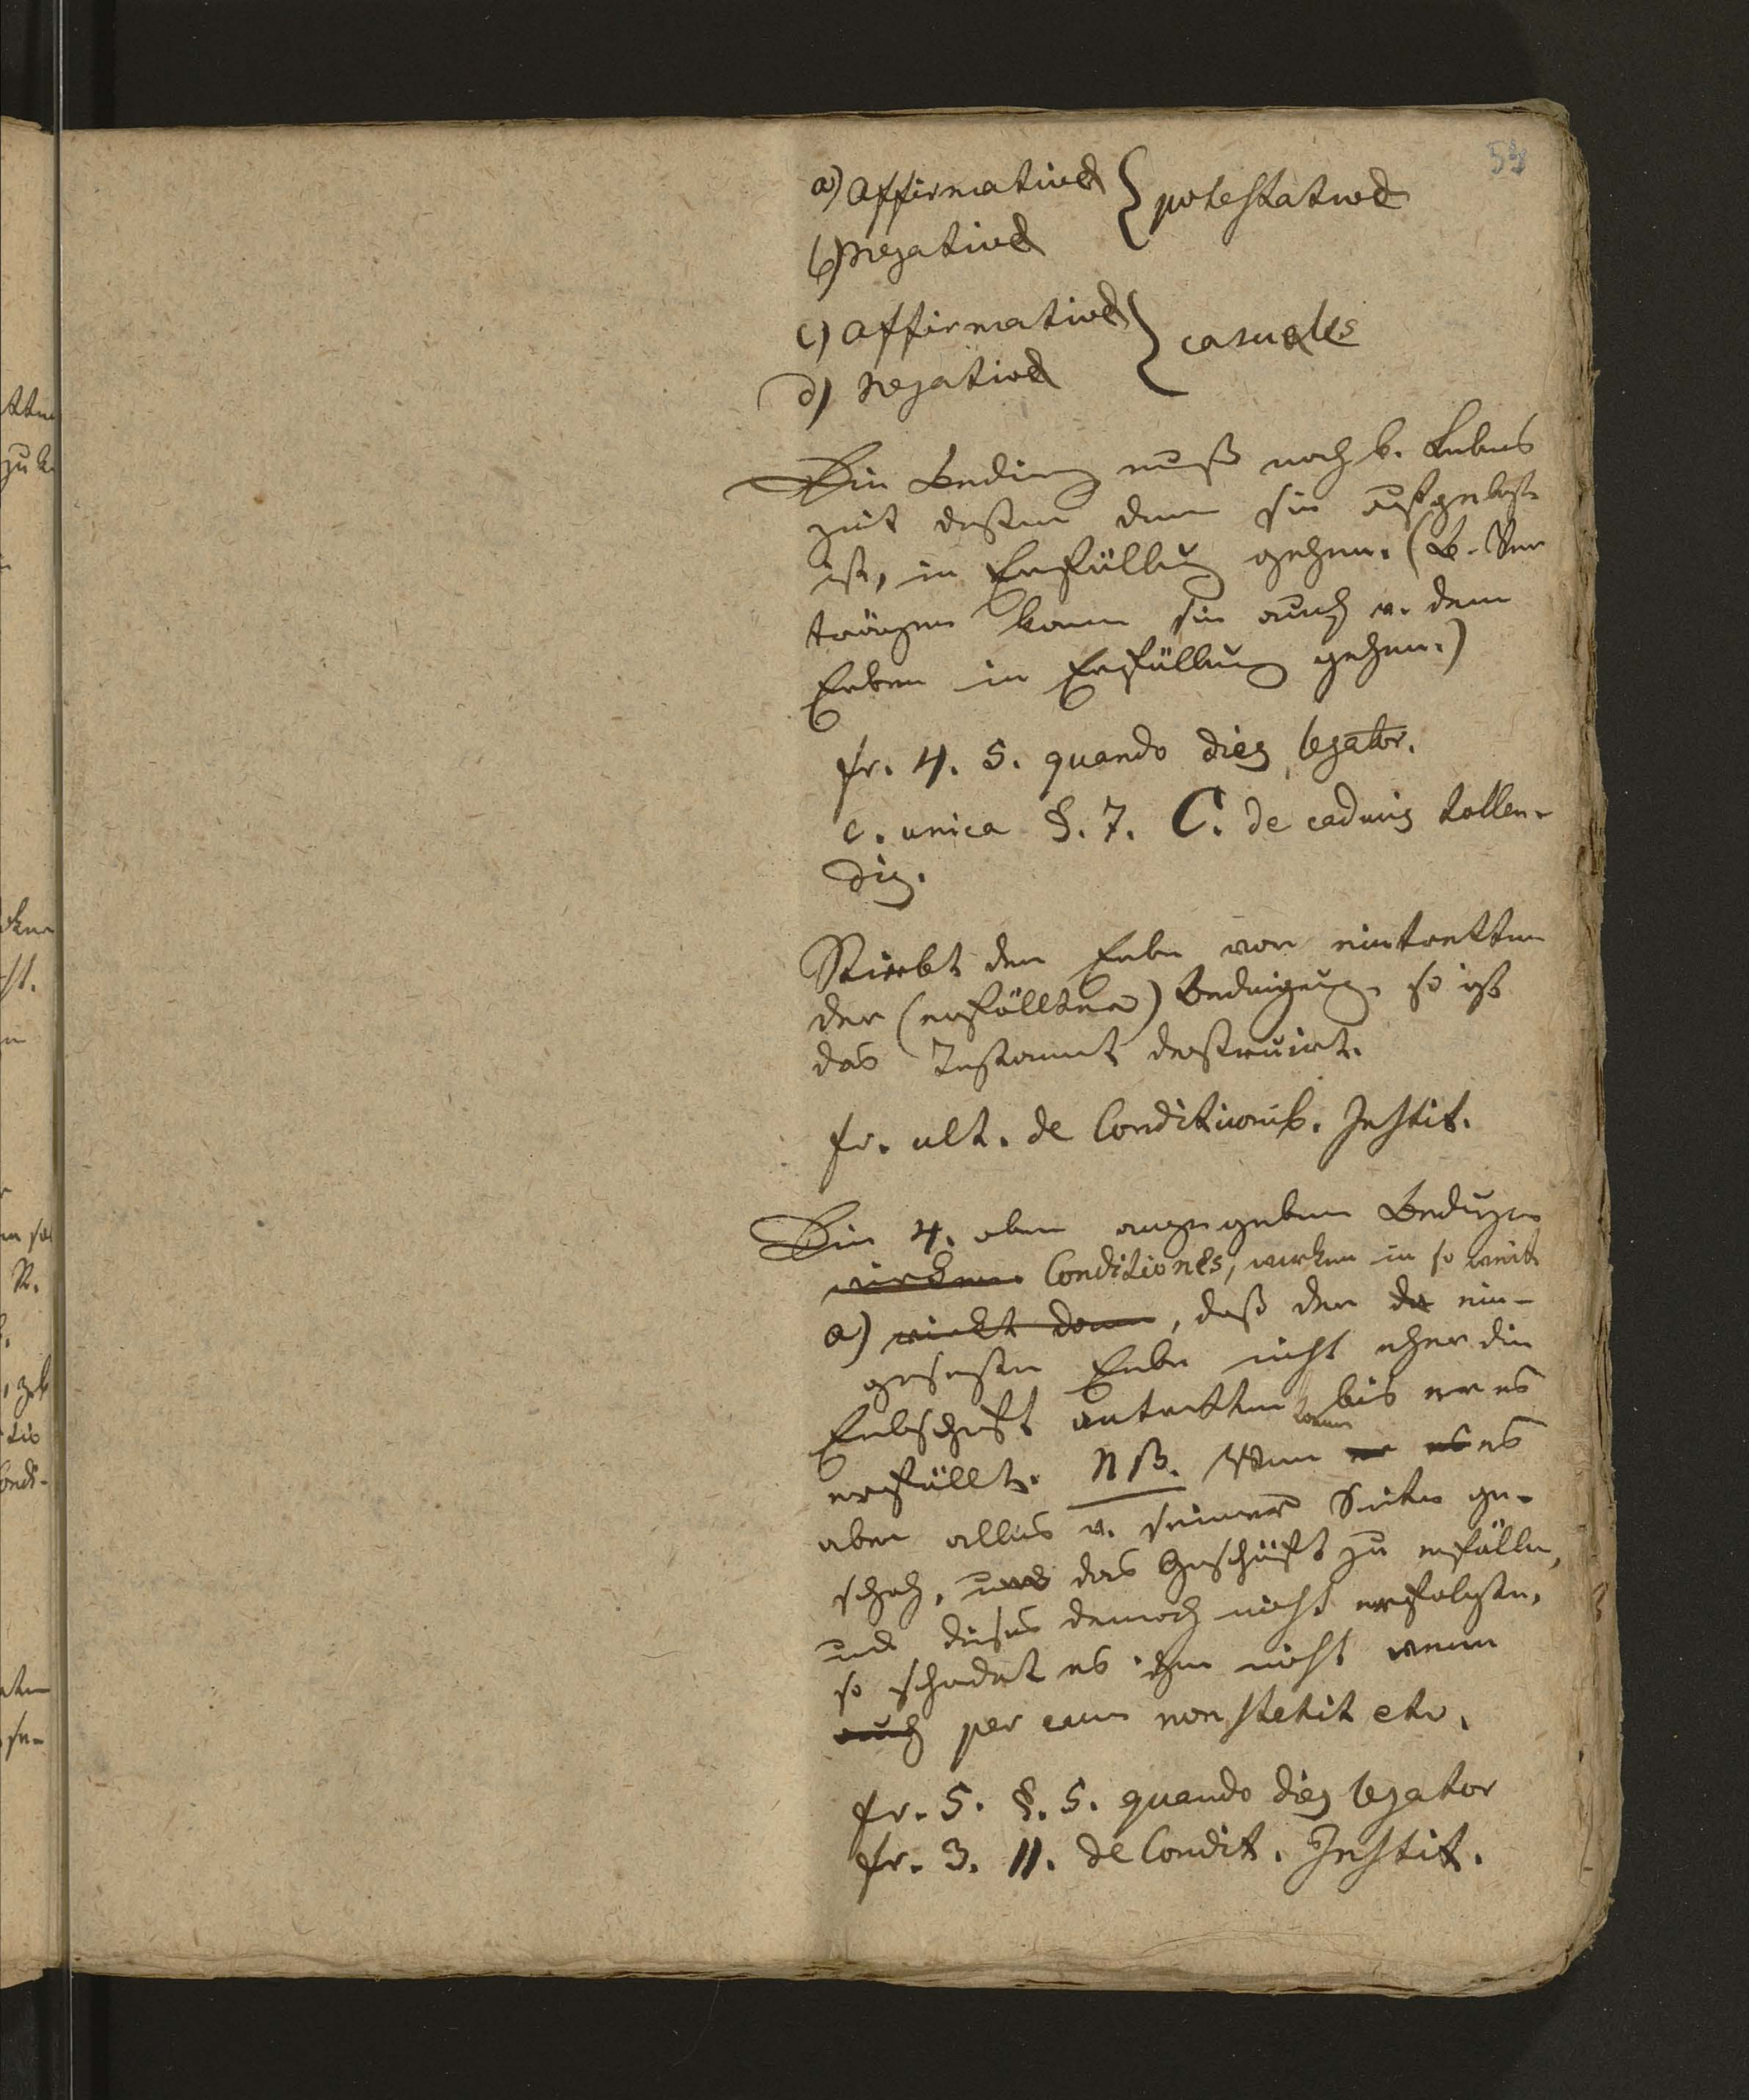 53
a) Affirmativae } potestativae
b) Negativae
c) Affirmativae } casuales
d) Negativae
Die Beding muß noch b. Lebens
zeit dessen dem sie aufgelegt
ist, in Erfüllung gehen. (B. Ver
trägen kann sie auch v. dem
Erben in Erfüllung gehen.)
fr. 4. 5. quando dies legator.
c. unica §. 7. C. de caducis tollen-
dis.
Stirbt der Erbe vor eintretten
der (erfüllten) Bedingung so ist
das Testament destruirt.
fr. ult. de Conditionib. Instit.
Die 4. oben angegeben Bedigen
wirken Conditiones, wirken in so weit
a) wirkt dann, daß der da ein-
gesezte Erbe nicht eher die
Erbschaft antretten kann bis er es
erfüllt. NB. Wenn er es es
aber alles v. seiner Seite ge-
schah, und das Geschäft zu erfüllen,
und dieses dennoch nicht erfolgte,
so schadet es ihm nicht wenn
auch per eum non stetit etc.
fr. 5. §. 5. quando dies legator
fr. 3. 11. de Condit. Instit.